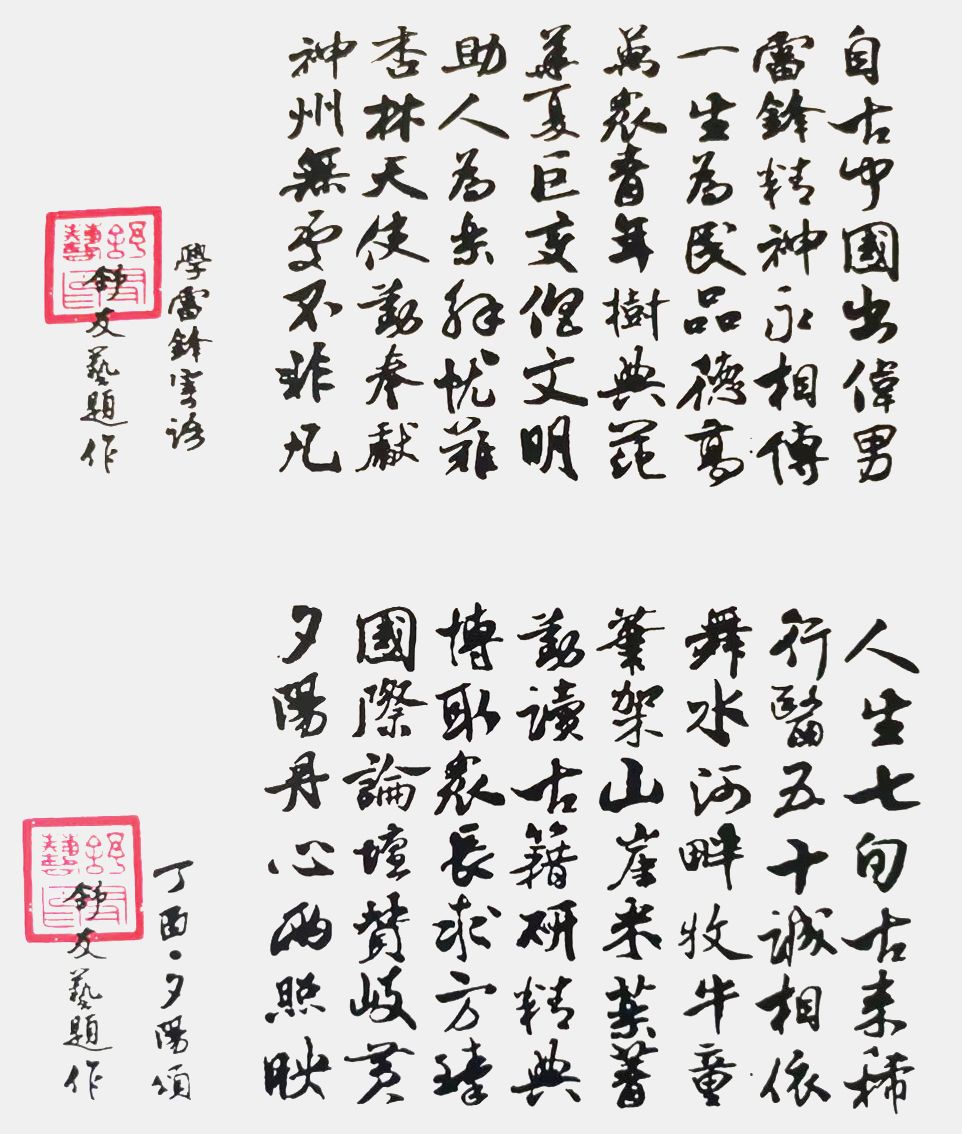 自古中國出偉男
雷鋒精神永相傳
一生為民品德高
萬眾青年樹典範
華夏巨变促文明
助人為樂解忧難
杏林天使勤奉獻
神州無處不非凡
學雷鋒寄語
舒友藝題作
舒友藝印
人生七旬古来稀
行醫五十誠相依
舞水河畔牧牛童
筆架山崖采
勤讀古籍研精典
博取眾長求方臻
國際論壇贊岐黃
夕陽丹心两照映
丁酉·夕陽頌
舒友藝題作
舒友藝印